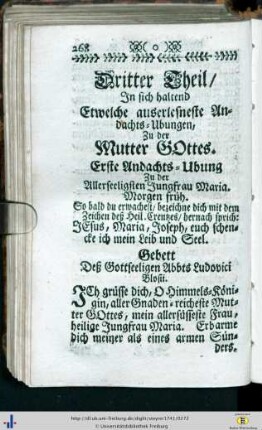 268
Dritter Theil/
In sich haltend
Etwelche auserlesneste An-
dachts-Ubungen,
Zu der
Mutter GOttes.
Erste Andachts-Ubung
Zu der
Allerseeligsten Jungfrau Maria.
Morgen früh.
So bald du erwachest, bezeichne dich mit dem
Zeichen deß Heil. Creutzes, hernach sprich:
JEsus, Maria, Joseph, euch schen-
cke ich mein Leib und Seel.
Gebett
Deß Gottseeligen Abbts Ludovici
Blosii.
JCh grüsse dich, O Himmels-Köni-
gin, aller Gnaden-reicheste Mut-
ter GOttes, mein allersüsseste Frau,
heilige Jungfrau Maria. Erbarme
dich meiner als eines armen Sün-
ders.
http://dl.ub.uni-freiburg.de/diglit/steyrer1741/0272
© Universitätsbibliothek Freiburg